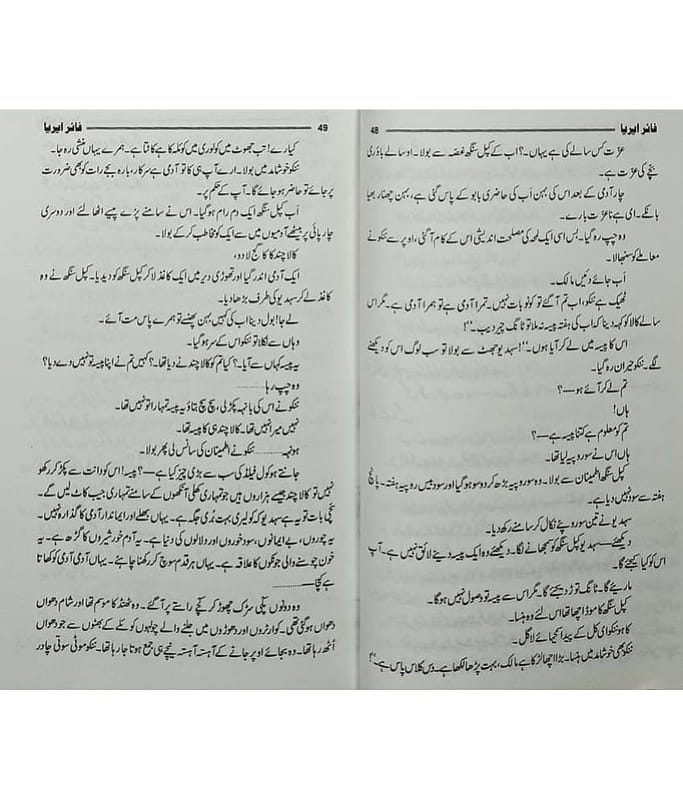 فائر ایریا 48
عزت کس سالے کی ہے یہاں۔؟ اب کے کپل سنگھ غصہ سے بولا۔ او سالے باڈری
بچے کی عزت ہے۔
چار آدمی کے بعد اس کی بہن اُب کی حاضری بابو کے پاس گئی ہے، بہن چھنار بھیا
بانکے۔ ای ہے نا عزت بارے۔
وہ چپ رہ گیا۔ بس اسی ایک لمحہ کی مصلحت اندیشی اس کے کام آ گئی، اوپر سے ننکو نے
معاملے کو سنبھالا۔
اَب جائے دئیں مالک۔
ٹھیک ہے ننکو، اب تم آ گئے تو کونو بات نہیں۔ تمرا آدمی ہے تو ہمرا آدمی ہے۔ مگر اس
سالے کالا کو کہہ دینا کہ اب کی ہفتہ پیسہ نہ ملا تو ٹانگ چیر دیب۔''!
اس کا پیسہ میں لے کر آیا ہوں۔''! سہدیو جھٹ سے بولا تو سب لوگ اس کو دیکھنے
لگے۔ ننکو حیران رہ گیا۔
تم لے کر آئے ہو—؟
ہاں!
تم کو معلوم ہے کتنا پیسہ ہے—؟
ہاں اس نے سو روپیہ لیا تھا۔
کپل سنگھ اطمینان سے بولا۔ وہ سو روپیہ بڑھ کر دو سو ہو گیا اور سود میں سو روپیہ ہفتہ۔ پانچ
ہفتہ سے سود نہیں دیا ہے۔
سہدیو نے تین سو روپے نکال کر سامنے رکھ دیا۔
دیکھئے— سہدیو کپل سنگھ کو سمجھانے لگا۔ دیکھئے وہ ایک پیسہ دینے لائق نہیں ہے۔ آپ
اس کو کیا کیجئے گا۔
ماریئے گا۔ ٹانگ توڑ دیجئے گا۔ مگر اس سے پیسہ تو وصول نہیں ہوگا۔
کپل سنگھ کا موڈ اچھا تھا اس لئے وہ ہنسا۔
کا ہو ننکو ای کل کے پیدا کیجائے لاگل۔
ننکو بھی خوشامد میں ہنسا۔ بڑا اچھا لڑکا ہے مالک، بہت پڑھا لکھا ہے۔ دس کلاس پاس ہے۔''
فائر ایریا 49
کیا رے! تب جھوٹ میں کولوری میں کوئلہ کا ہے کاٹتا ہے۔ ہمرے یہاں منشی رہ جا۔
ننکو خوشامد میں بولا۔ ارے آپ ہی کا تو آدمی ہے سرکار، بارہ بجے رات کو بھی ضرورت
پر جائے تو حاضر ہو جائے گا۔ آپ کے حکم پر۔
اَب کپل سنگھ ایک دم رام ہو گیا۔ اس نے سامنے پڑے پیسے اٹھا لئے اور دوسری
چارپائی پر بیٹھے آدمیوں میں سے ایک کو مخاطب کر کے بولا۔
کالا چند کا کاگج لا دو،
ایک آدمی اندر گیا اور تھوڑی دیر میں ایک کاغذ لا کر کپل سنگھ کو دیدیا۔ کپل سنگھ نے وہ
کاغذ لے کر سہدیو کی طرف بڑھا دیا۔
لے جا! بول دینا اب کی کہیں بہن پھنسے تو ہمرے پاس مت آئے۔
وہاں سے نکلا تو ننکو اس کے سر ہو گیا۔
یہ پیسہ کہاں سے آیا۔؟ کیا تم کو کالا چند نے دیا تھا۔؟ کہیں تم نے اپنا پیسہ تو نہیں دے دیا؟
وہ چپ رہا............
ننکو نے اس کی بانہہ پکڑ لی، سچ سچ بتاؤ یہ پیسہ تمہارا تو نہیں تھا۔
نہیں میرا نہیں تھا۔ کالا چند ہی کا پیسہ تھا۔
ہونہہ............ ننکو نے اطمینان کی سانس لی پھر بولا۔
جانتے ہو کول فیلڈ کی سب سے بڑی چیز کیا ہے—؟ پیسہ! اس کو دانت سے پکڑ کر رکھو
نہیں تو کالا چند جیسے ہزاروں ہیں جو تمہاری کھلی آنکھوں کے سامنے تمہاری جیب کاٹ لیں گے۔
سچی بات تو یہ ہے سہدیو کہ کولیری بہت بُری جگہ ہے۔ یہاں بھلے اور ایماندار آدمی کا گذارہ نہیں۔
یہ چوروں، بے ایمانوں، سود خوروں اور دلالوں کی دنیا ہے۔ یہ آدم خور شیروں کا گڑھ ہے۔ یہ
خون چوسنے والی جونکوں کا علاقہ ہے۔ یہاں ہر قدم سوچ کر رکھنا چاہئے۔ یہاں آدمی آدمی کو کھاتا
ہے کچا............
وہ دونوں پکی سڑک چھوڑ کر کچے راستے پر آ گئے۔ وہ ٹھنڈ کا موسم تھا اور شام دھواں
دھواں ہو گئی تھی۔ کوارٹروں اور دھوڑوں میں جلنے والے چولہوں کوئلے کے بھٹوں سے جو دھواں
اُٹھ رہا تھا۔ وہ بجائے اوپر جانے کے آہستہ آہستہ نیچے ہی جمع ہوتا جا رہا تھا۔ ننکو موٹی سوتی چادر